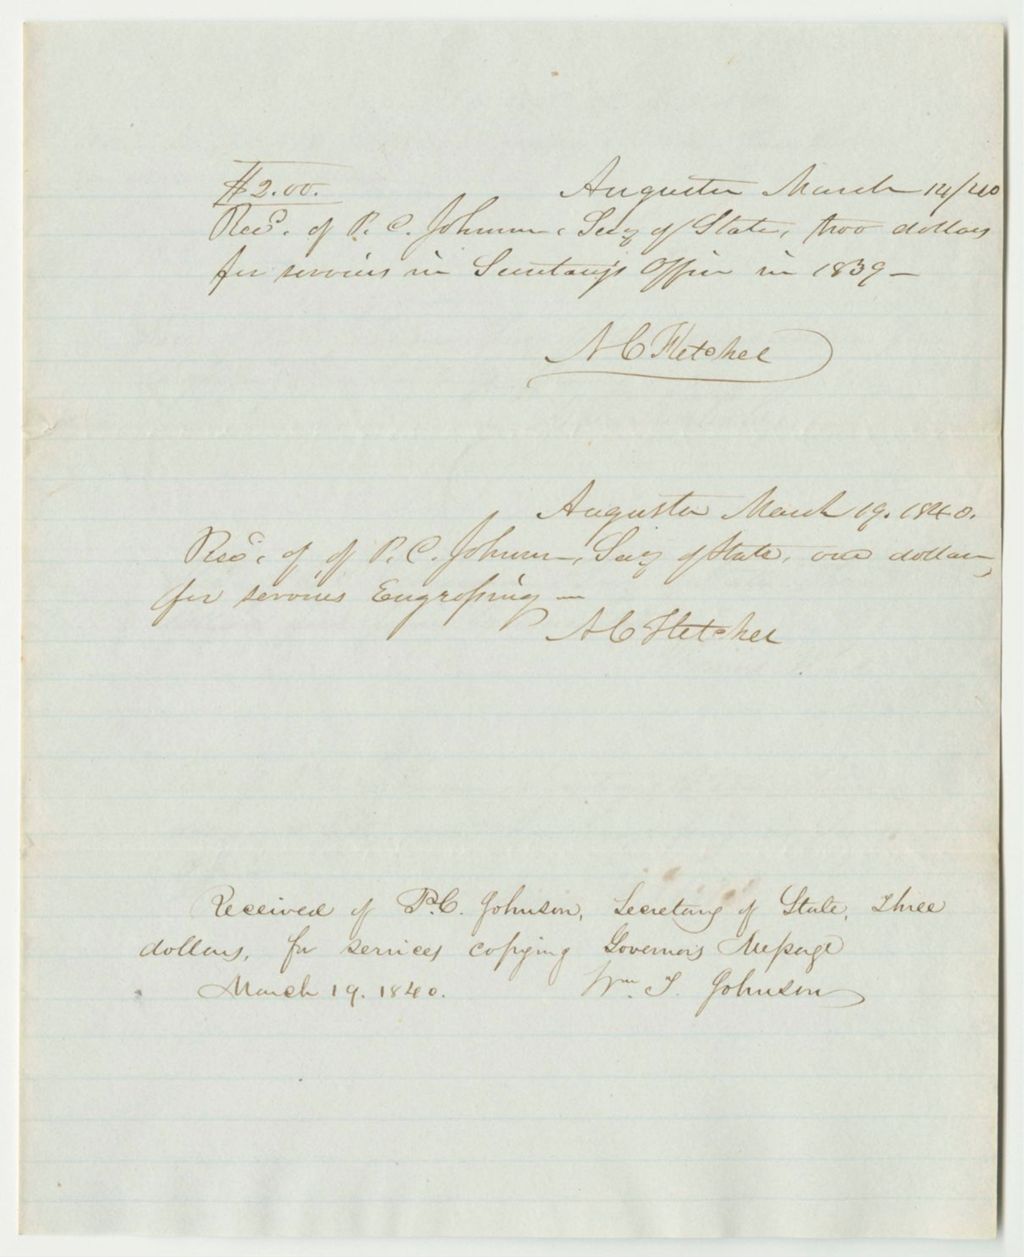 $2.00. Augusta March 14/40
Recd. of P. C. Johnson, Secy of State, two dollars
for services in Secretary's Office in 1839 —
A C Fletcher
Augusta March 19. 1840.
Recd. of of P. C. Johnson, Secy of State, one dollar,
for services Engrossing —
A C Fletcher
Received of P. C. Johnson, Secretary of State, Three
dollars, for services copying Governor's Message
March 19. 1840. Wm. T. Johnson